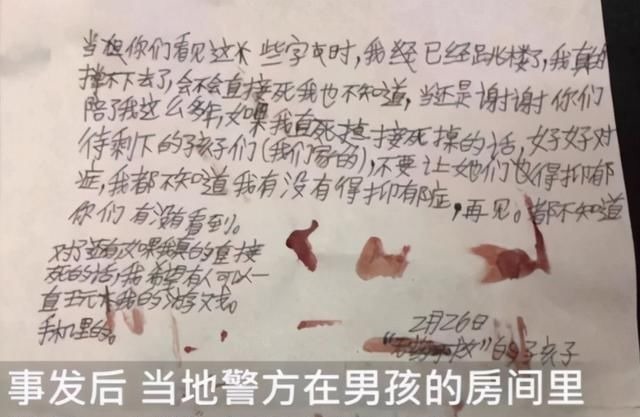 当想你们看见这些字或时，我经已经跳楼了，我真的
撑不下去了，会不会直接死我也不知道，当还是谢谢你们
陪了我这么多年，如果我直死掉接死掉的话，好好对
待剩下的孩子们（我们家的），不要让她们也得抑郁
症，我都不知道我有没有得抑郁症，再见。都不知道
你们有没有看到。
对了还有如果我真的直接
死的话，我希望有人可以一
直玩我的游戏。
手机里的。
2月26日
的孩子
事发后 当地警方在男孩的房间里